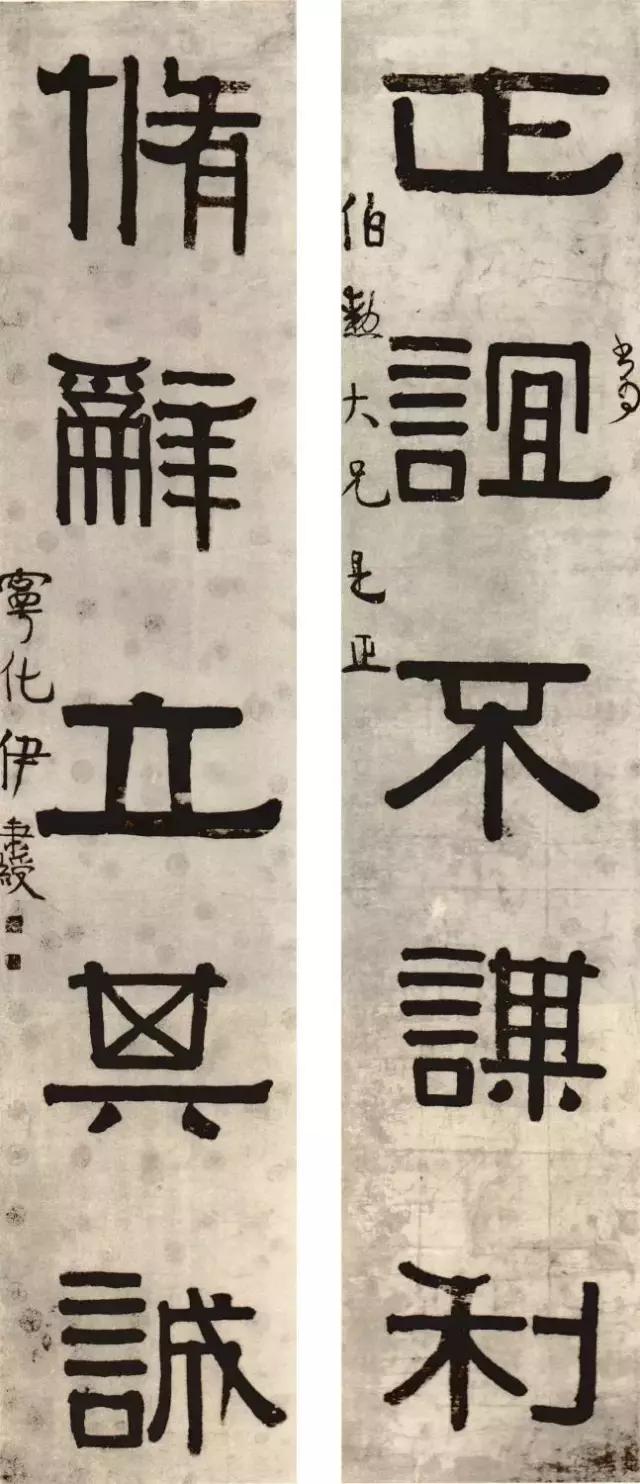 書為
正誼不謀利
伯勲大兄是正
脩辭立其誠
寧化伊秉綬